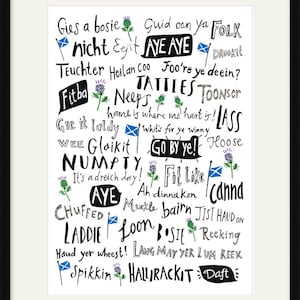 Gies a bosie Guid can ya FOLK
nicht Eejit AYE AYE DROOKIT
Teuchter Heilan Coo Joo're ye deein?
Fitba TATTIES Toonser
Neeps hame is where ma hairt is! LASS
Gie it laldy Whits fir ye winny
WEE Glaikit GO BY ye! Hoose
NUMPTY Fit Like
It's a dreich day! Ah dinnaken canna
AYE Muckle bairn JIST HAUD ON
CHUFFED Loon BOSIE Recking
LADDIE LANG MAY YER LUM REEK
Haud yer wheest! HALLIRACKIT Daft
Spikkin